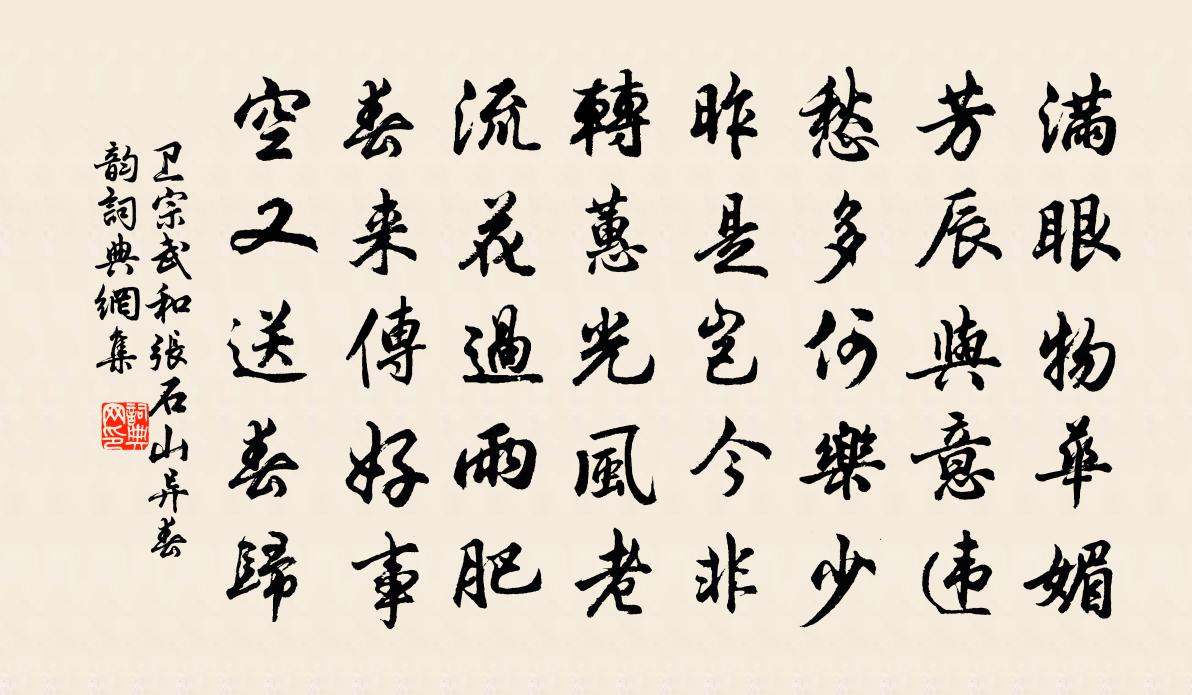 满眼物華媚
芳辰與意违
愁多何樂少
昨是岂今非
轉蕙光風老
流花過雨肥
春来傳好事
空又送春歸
卫宗武和張石山异春
韵詞典網集
詞典网印